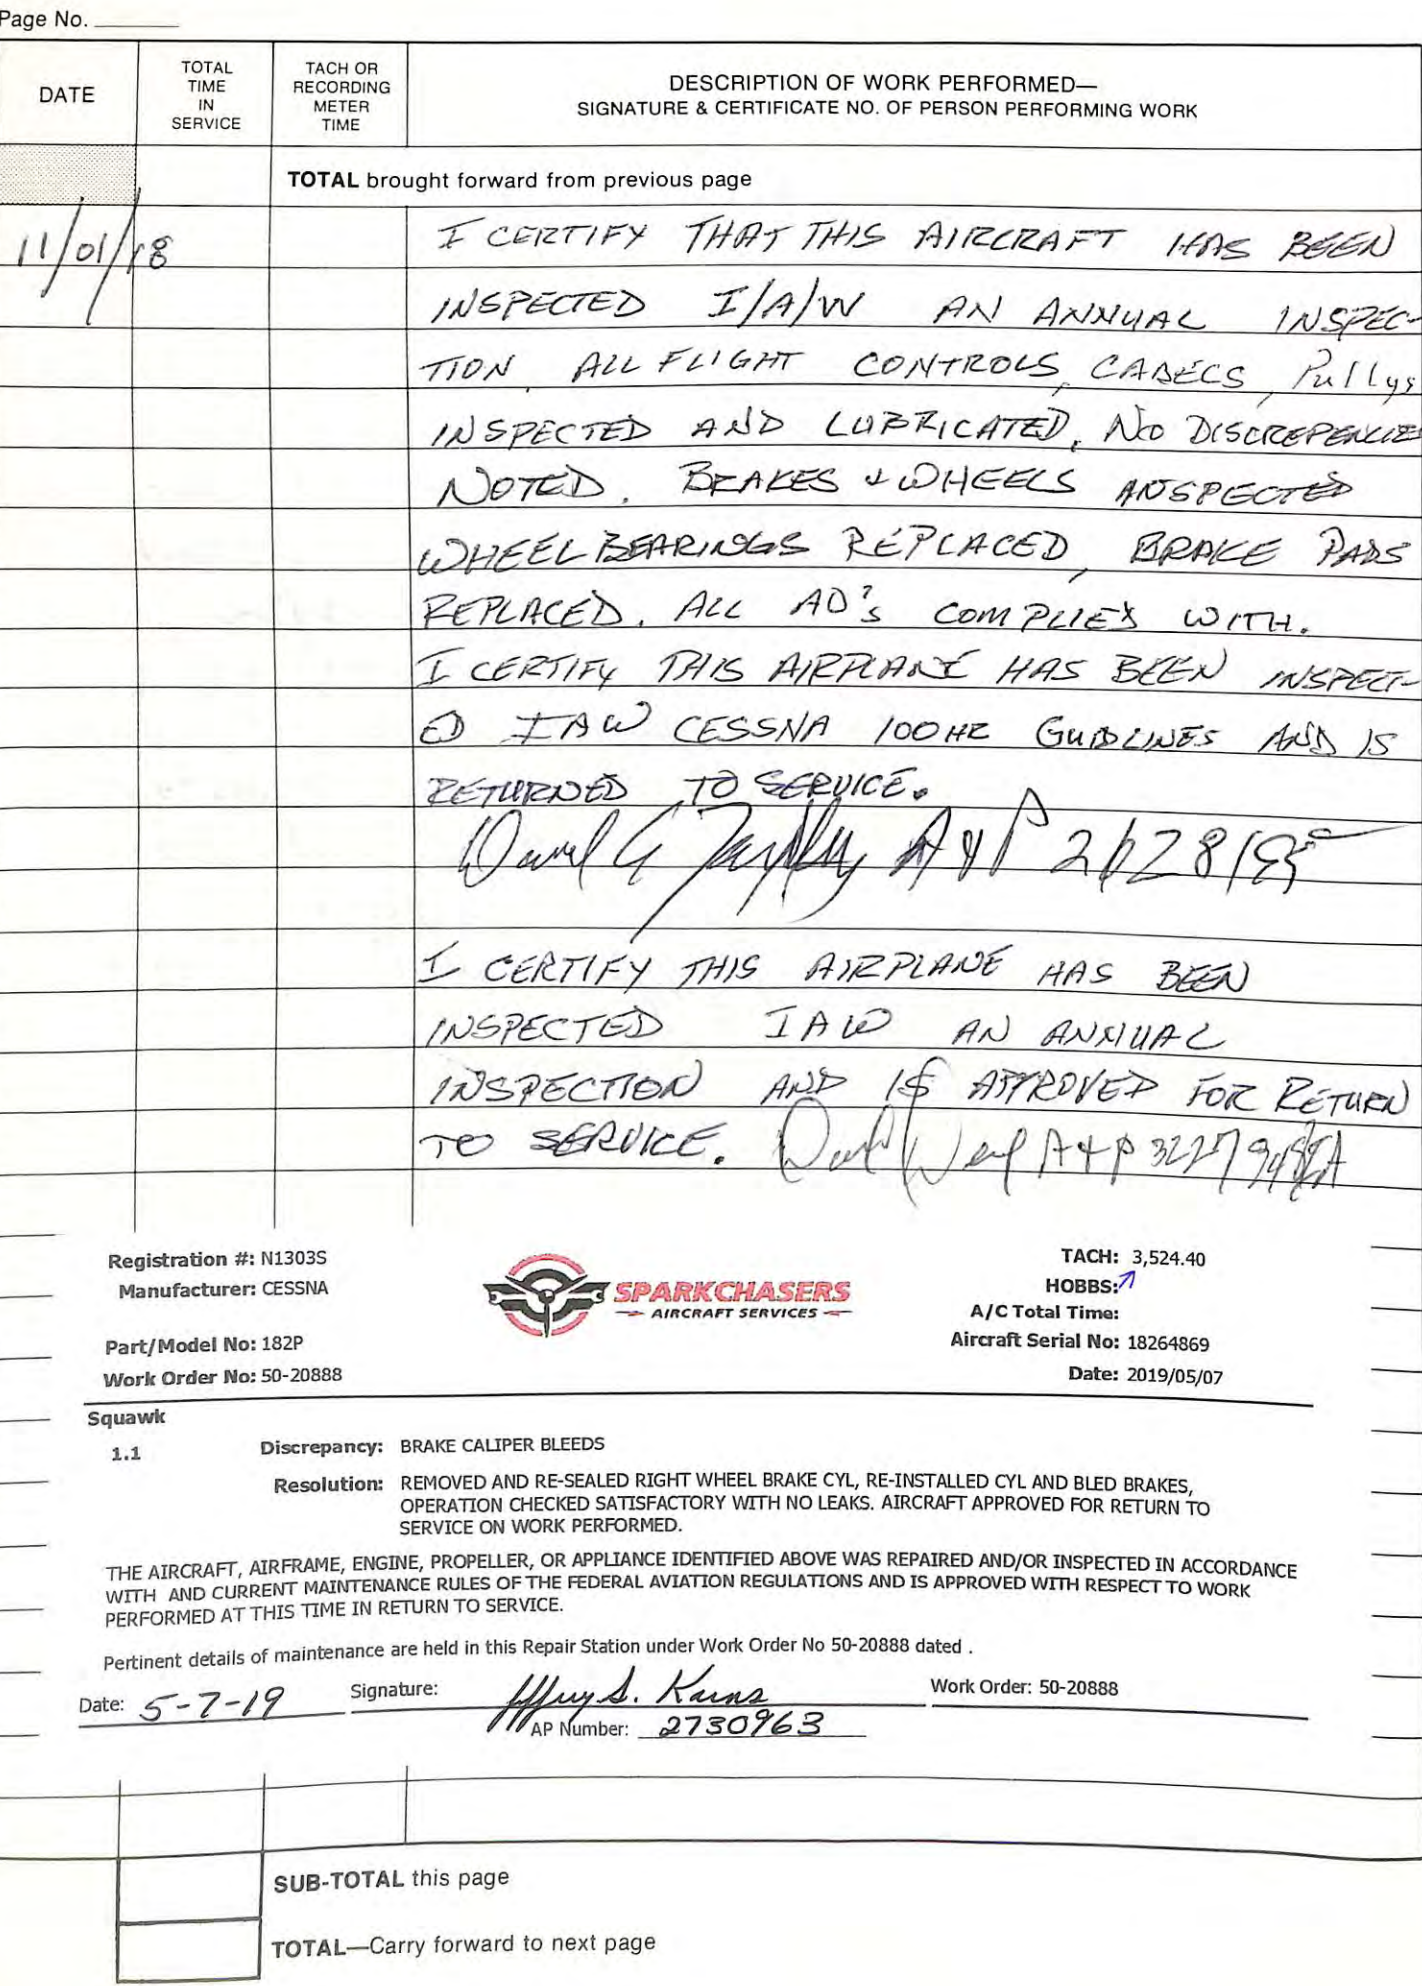 Page No.
DATE
TOTAL
TIME
IN
SERVICE
TACH OR
RECORDING
METER
TIME
DESCRIPTION OF WORK PERFORMED—
SIGNATURE & CERTIFICATE NO. OF PERSON PERFORMING WORK
TOTAL brought forward from previous page
11/01/18
I CERTIFY THAT THIS AIRCRAFT HAS BEEN
INSPECTED I/A/W AN ANNUAL INSPEC-
TION. ALL FLIGHT CONTROLS, CABLES, Pullys
INSPECTED AND LUBRICATED, NO DISCREPENCIE
NOTED. BRAKES & WHEELS INSPECTED
WHEEL BEARINGS REPLACED, BRAKE PADS
REPLACED. ALL AD's COMPLIED WITH.
I CERTIFY THIS AIRPLANE HAS BEEN INSPECT-
ED IAW CESSNA 100HR GUIDLINES AND IS
RETURNED TO SERVICE.
A & P
I CERTIFY THIS AIRPLANE HAS BEEN
INSPECTED IAW AN ANNUAL
INSPECTION AND IS APPROVED FOR RETURN
TO SERVICE. A & P
Registration #: N1303S
Manufacturer: CESSNA
Part/Model No: 182P
Work Order No: 50-20888
SPARKCHASERS
AIRCRAFT SERVICES
TACH: 3,524.40
HOBBS:
A/C Total Time:
Aircraft Serial No: 18264869
Date: 2019/05/07
Squawk
1.1
Discrepancy: BRAKE CALIPER BLEEDS
Resolution: REMOVED AND RE-SEALED RIGHT WHEEL BRAKE CYL, RE-INSTALLED CYL AND BLED BRAKES,
OPERATION CHECKED SATISFACTORY WITH NO LEAKS. AIRCRAFT APPROVED FOR RETURN TO
SERVICE ON WORK PERFORMED.
THE AIRCRAFT, AIRFRAME, ENGINE, PROPELLER, OR APPLIANCE IDENTIFIED ABOVE WAS REPAIRED AND/OR INSPECTED IN ACCORDANCE
WITH AND CURRENT MAINTENANCE RULES OF THE FEDERAL AVIATION REGULATIONS AND IS APPROVED WITH RESPECT TO WORK
PERFORMED AT THIS TIME IN RETURN TO SERVICE.
Pertinent details of maintenance are held in this Repair Station under Work Order No 50-20888 dated .
Date: 5-7-19 Signature: Jeffrey S. Karns Work Order: 50-20888
AP Number: 2730963
SUB-TOTAL this page
TOTAL—Carry forward to next page